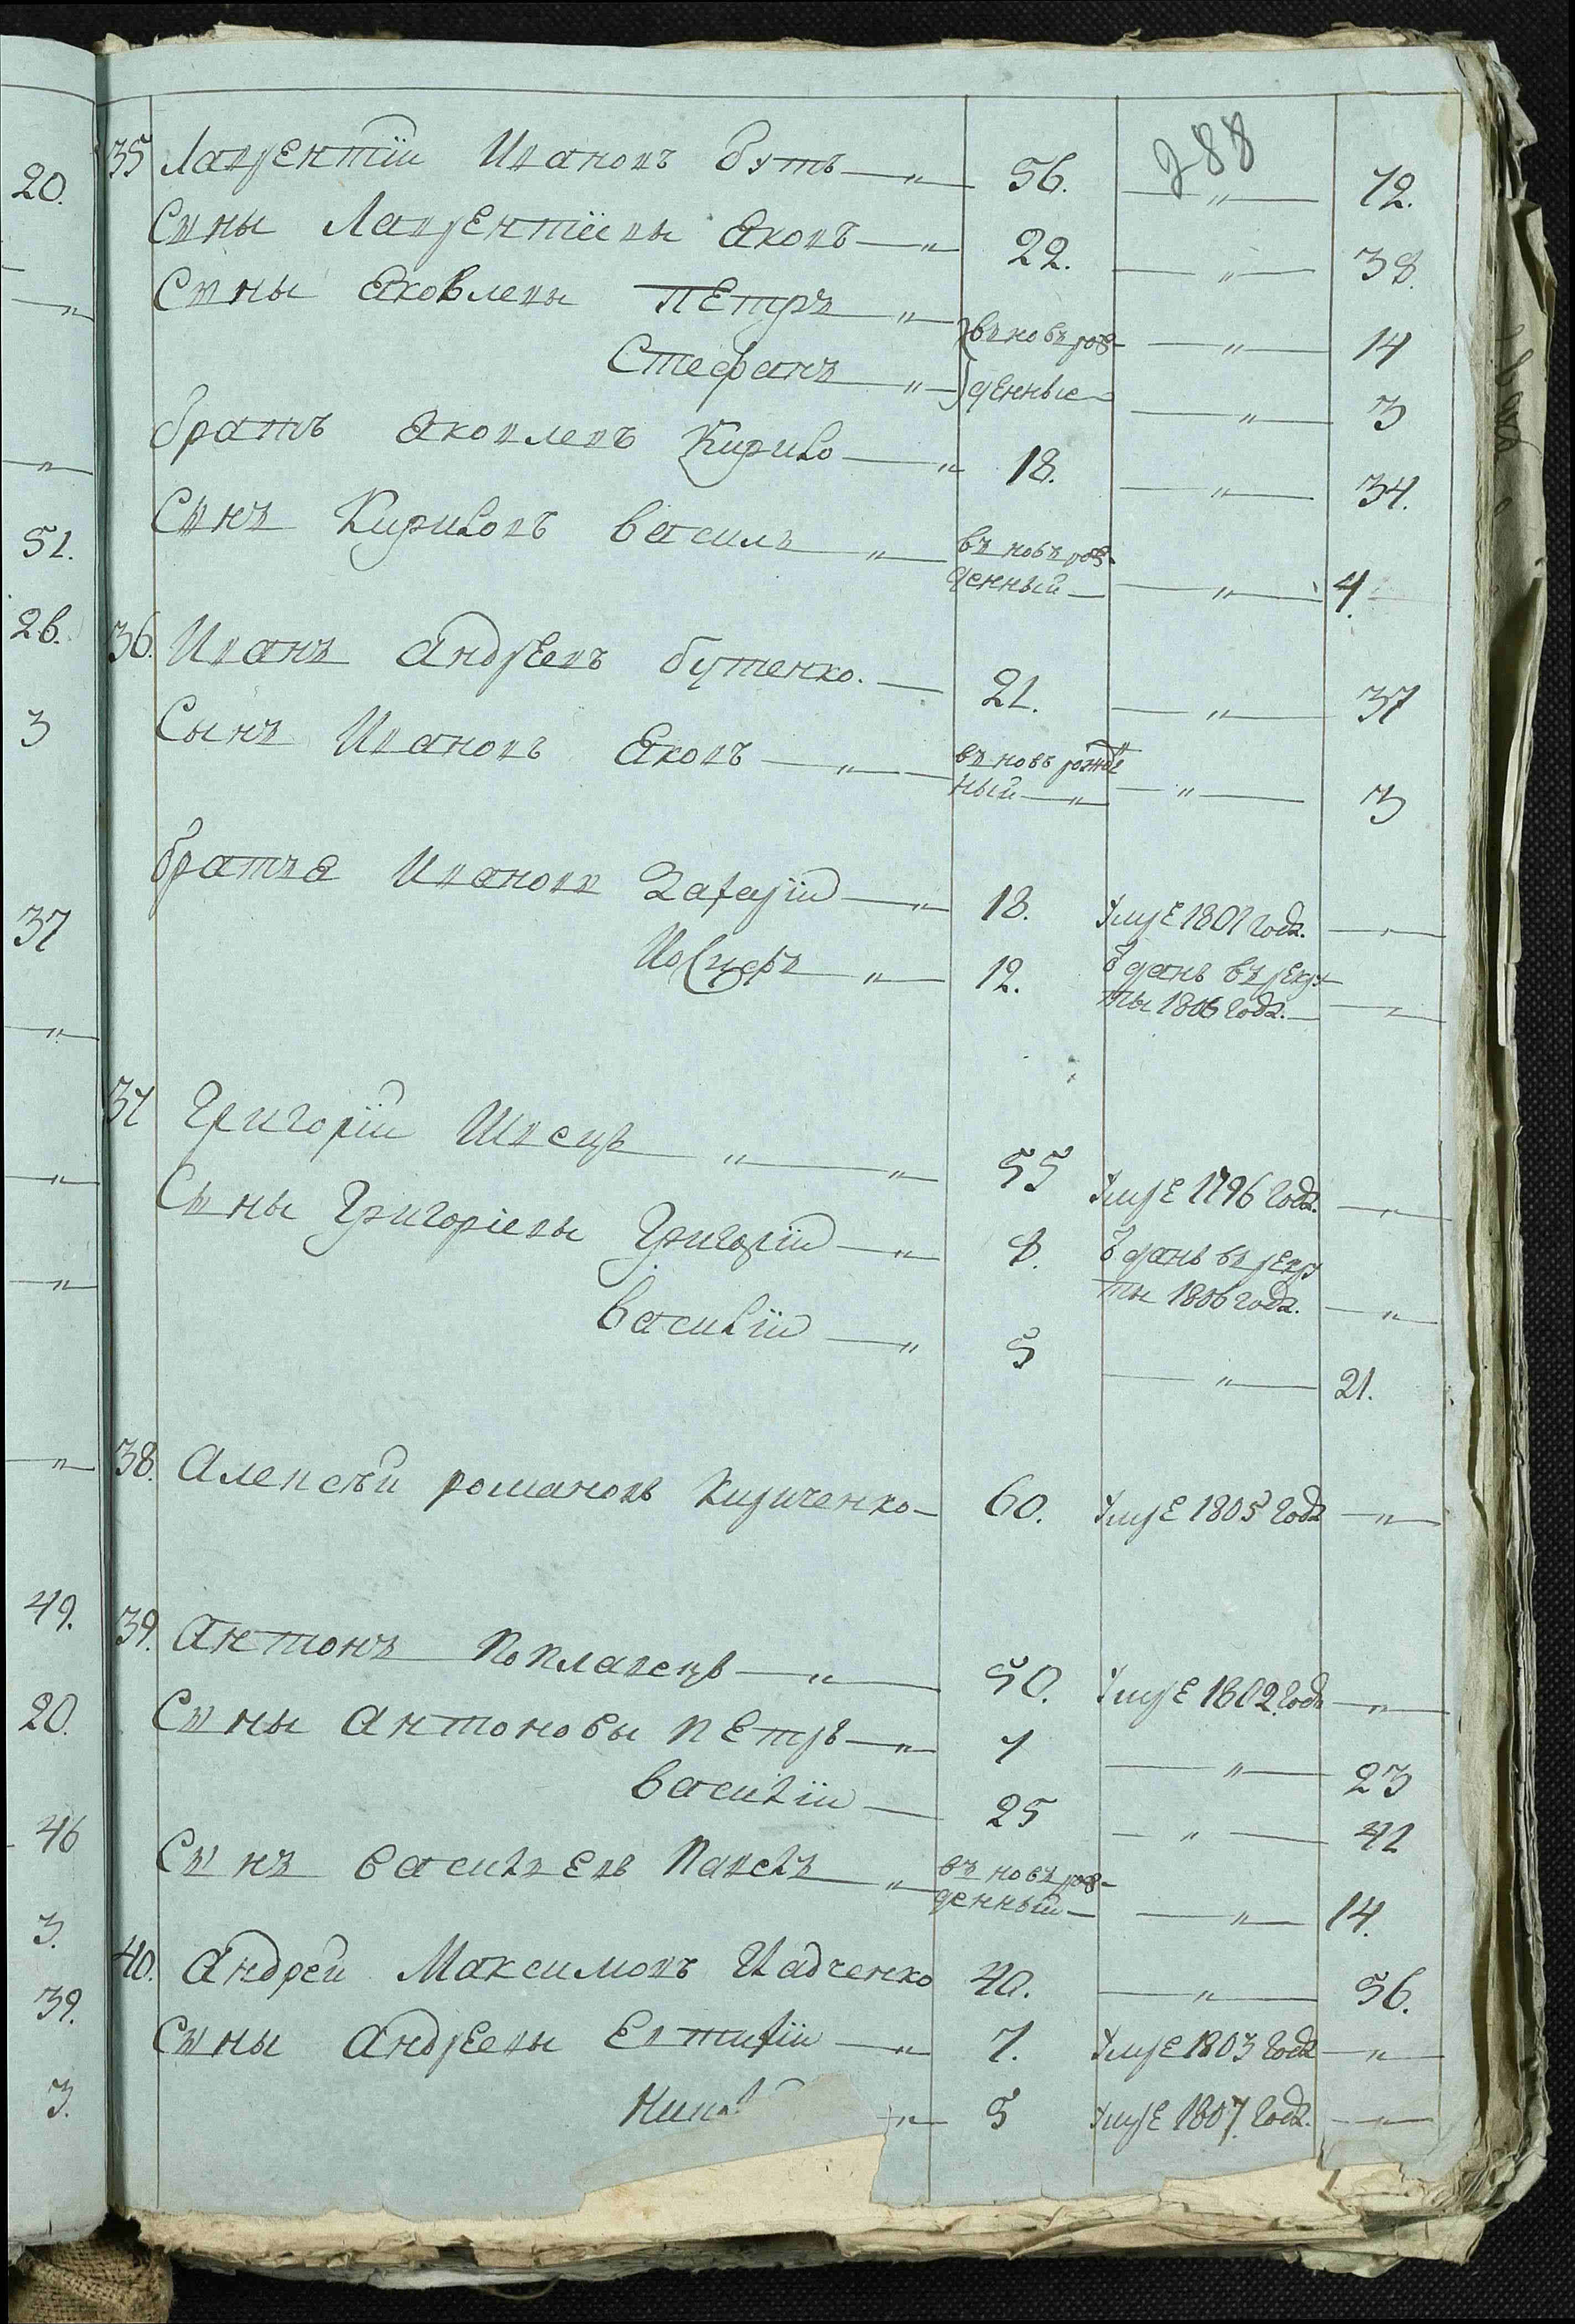 288
35 Лаврентіи Ивановъ бутъ —„— 56. —„— 72.
Сыны Лаврентіевы Яковъ —„ 22. —„— 38.
Сыны Яковлевы Петръ „— въ новъ рож- —„— 14
Стефанъ „— денные —„— 3
братъ Яковлевъ Кирило —„ 18. —„— 34.
Сынъ Кириловъ василъ „— въ новъ рож-
денный —„— 4.
36. Иванъ андреевъ бутенко. — 21. —„— 37
Сынъ Ивановъ Яковъ —„— въ новъ рожде
ный —„— —„— 3
братья Ивановы Захарій —„— 18. умре 1801 года. —„—
Иосифъ „— 12. ѿданъ въ рекру
ты 1806 года. —„—
37 Григоріи Швецъ —„—„ 55 умре 1796 года. —„—
Сыны Григоріевы Григорій —„ 8. ѿданъ въ рекру
ты 1806 года. —„—
василій —„ 5 —„— 21.
38. Алексѣй романовъ Кириченко — 60. умре 1805 года —„—
39. антонъ Поплавецъ —„— 50. умре 1802 года —„—
Сыны антоновы Петръ —„ 7 —„— 23
василіи — 25 —„— 41
Сынъ васильевъ Павелъ „— въ новъ рож-
денный — —„— 14.
40. андрей Максимовъ 40. —„— 56.
Сыны андреевы Евтифіи —„ 7. умре 1803 года —„—
„— 5 умре 1807 года. —„—
20.
„
„
51.
26.
3
37
„
„
„
„
49.
20.
46
3.
39.
3.